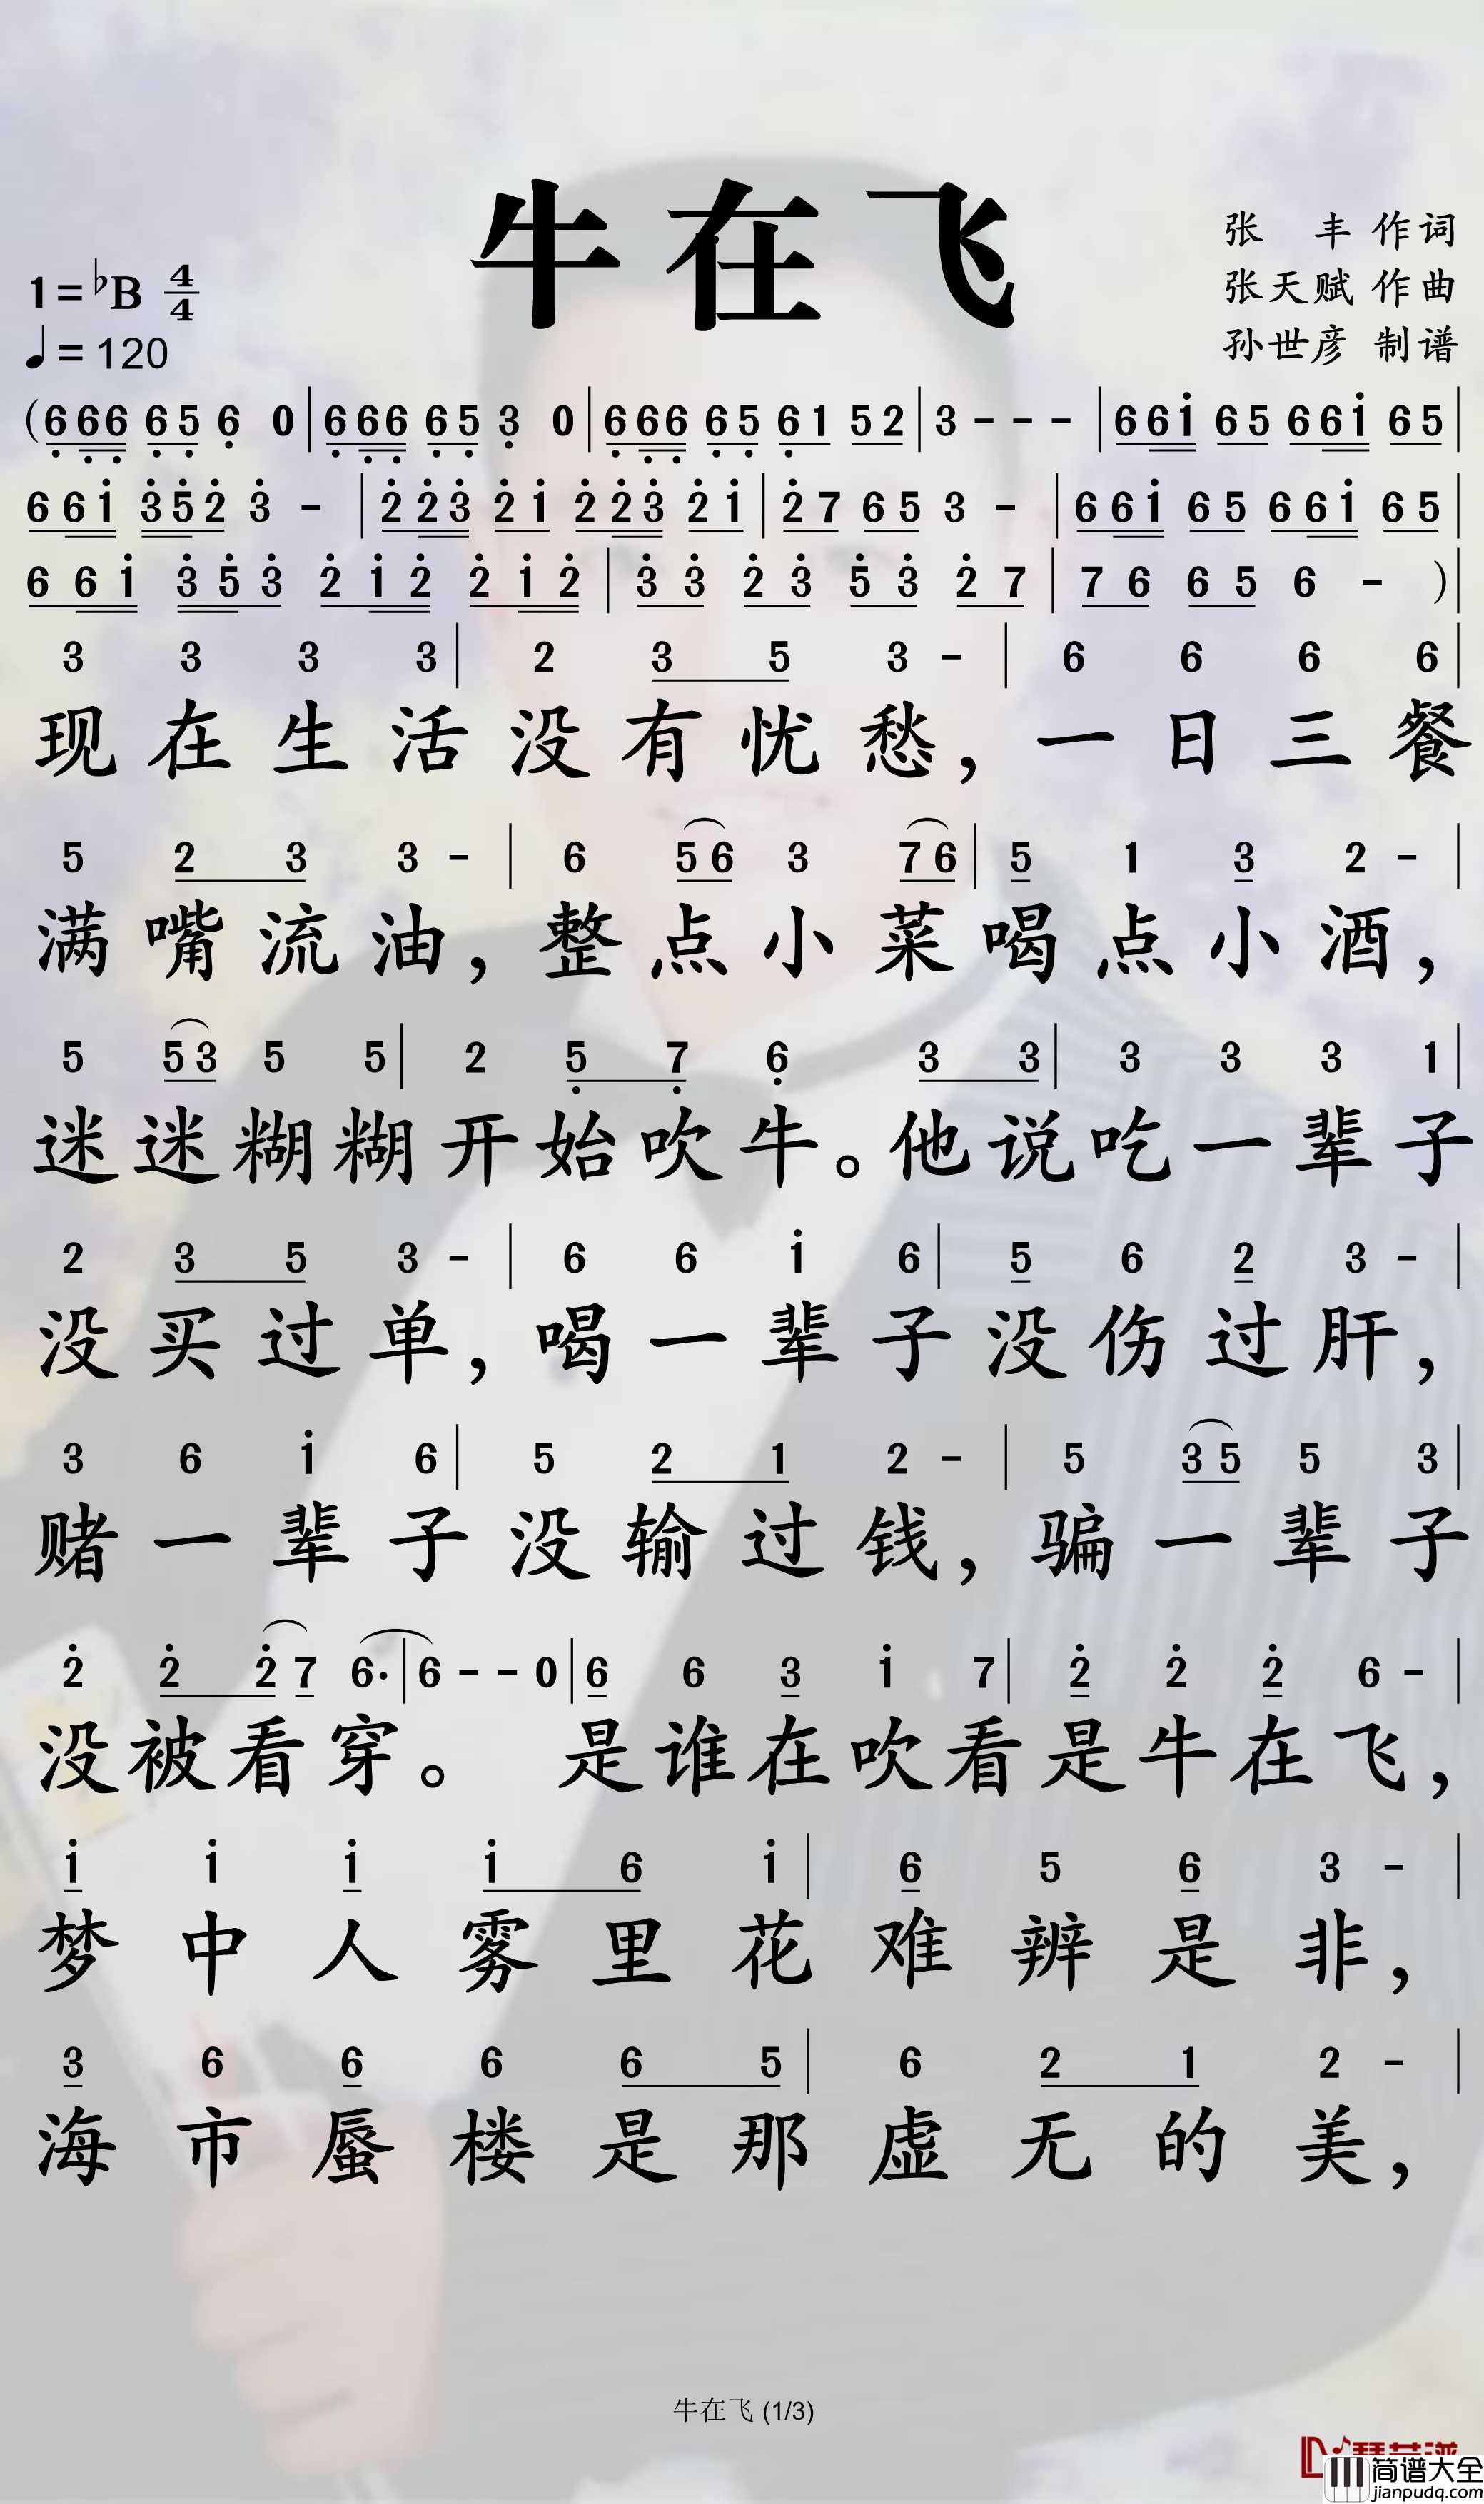 牛在飞
张 丰 作词
张天赋 作曲
孙世彦 制谱
1=♭B 4/4
♩=120
(6̣ 6̣6̣ 6̣5̣ 6̣ 0|6̣ 6̣6̣ 6̣5̣ 3̣ 0|6̣ 6̣6̣ 6̣5̣ 6̣1 52|3 - - -|66i 65 66i 65|
66i 3̇5̇2̇ 3̇ -|2̇2̇3̇ 2̇i 2̇2̇3̇ 2̇i|2̇7 65 3 -|66i 65 66i 65|
66i 3̇5̇3̇ 2̇i2̇ 2̇i2̇|3̇3̇ 2̇3̇ 5̇3̇ 2̇7|76 65 6 - )|
3 3 3 3|2 3 5 3 -|6 6 6 6|
现在生活没有忧愁，一日三餐
5 2 3 3 -|6 56 3 76|5 1 3 2 -|
满嘴流油，整点小菜喝点小酒，
5 53 5 5|2 5̣ 7̣ 6̣ 3 3|3 3 3 1|
迷迷糊糊开始吹牛。他说吃一辈子
2 3 5 3 -|6 6 i 6|5 6 2 3 -|
没买过单，喝一辈子没伤过肝，
3 6 i 6|5 2 1 2 -|5 35 5 3|
赌一辈子没输过钱，骗一辈子
2̇ 2̇ 2̇7 6·|6 - - 0|6 6 3 i 7|2̇ 2̇ 2̇ 6 -|
没被看穿。 是谁在吹看是牛在飞，
i i i i 6 i|6 5 6 3 -|
梦中人雾里花难辨是非，
3 6 6 6 6 5|6 2 1 2 -|
海市蜃楼是那虚无的美，
牛在飞 (1/3)
简谱大全
jianpudq.com